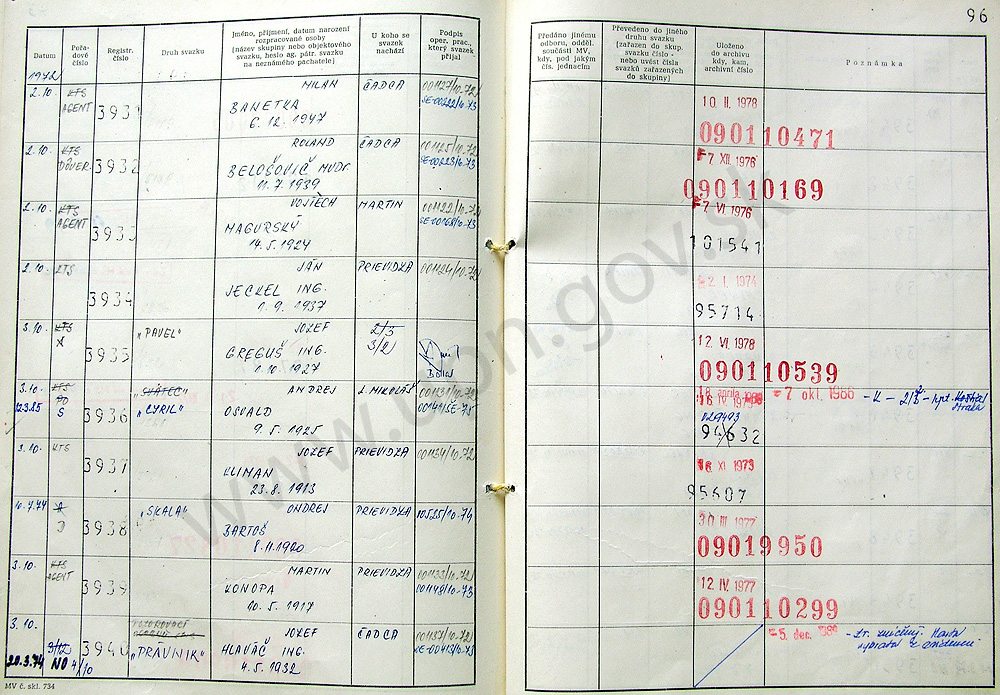 96
Datum
Pořa-
dové
číslo
Registr.
číslo
Druh svazku
Jméno, příjmení, datum narození
rozpracované osoby
(název skupiny nebo objektového
svazku, heslo ag. pátr. svazku
na neznámého pachatele)
U koho se
svazek
nachází
Podpis
oper. prac.,
který svazek
přijal
Předáno jinému
odboru, odděl.
součásti MV,
kdy, pod jakým
čís. jednacím
Převedeno do jiného
druhu svazku
(zařazen do skup.
svazku číslo -
nebo uvést čísla
svazků zařazených
do skupiny)
Uloženo
do archivu
kdy, kam,
archivní číslo
Poznámka
1972
2.10. KTS AGENT 3931 MILAN ČADCA 001127/10-72
BANETKA SE-00222/10-73
6. 12. 1947
10 II. 1978
090110471
2.10. KTS DÔVER. 3932 ROLAND ČADCA 001125/10-72
BELOŠOVIČ MUDr. SE-00223/10-73
11. 7. 1939
7 XII. 1976
090110169
2.10. KTS AGENT 3933 VOJTĚCH MARTIN 001122/10-72
MAGURSKÝ SE-00168/10-73
14. 5. 1924
7. VI 1976
101541
2.10. KTS 3934 JÁN PRIEVIDZA 001124/10-72
JECKEL ING.
1. 9. 1937
2. I. 1974
95714
3.10. KTS 3935 „PAVEL" JOZEF 2/3
GREGUŠ ING. 3/2
1. 10. 1927
12. VI. 1978
090110539
3.10. KTS PO 3936 „SVÁTEC" ANDREJ L. MIKULÁŠ 001131/10-72
12.3.75 S „CYRIL" OSVALD
9. 5. 1925
7 okt. 1986
94632
3.10. KTS 3937 JOZEF PRIEVIDZA 001134/10-72
KLIMAN
23. 8. 1913
XI. 1973
95607
10.7.74 3938 „SKALA" ONDREJ PRIEVIDZA 10525/10-74
BARTOŠ
8. 11. 1920
30 III. 1977
09019950
3.10. KTS AGENT 3939 MARTIN PRIEVIDZA 001133/10-72
KONOPA 001148/10-73
10. 5. 1917
12. IV. 1977
090110299
3.10. POZOROVACÍ
3940 „PRÁVNIK" JOZEF ČADCA 001137/10-72
20.3.74 NO 4/10 HLAVÁČ ING. SE-00413/10-73
4. 5. 1932
5. dec.
MV č. skl. 734
www.upn.gov.sk